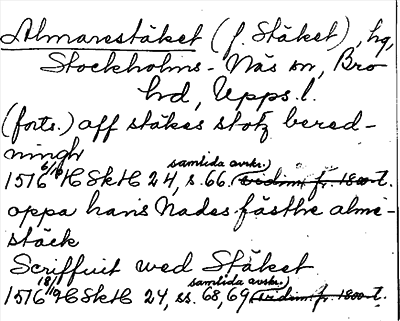 Almarestäket (f. Stäket), hg,
Stockholms-Näs sn, Bro
hd, Upps. l.
(forts.) aff stäkes slotz bered-
ningh
1516 6/10 HSkH 24, s. 66. (samtida avskr.) vidim. fr. 1800-t.
oppa hans Nades fästhe alme-
stäck
Scriffuit wed Stäket
1516 18/10 HSkH 24, ss. 68, 69 (samtida avskr.) vidim. fr. 1800-t.